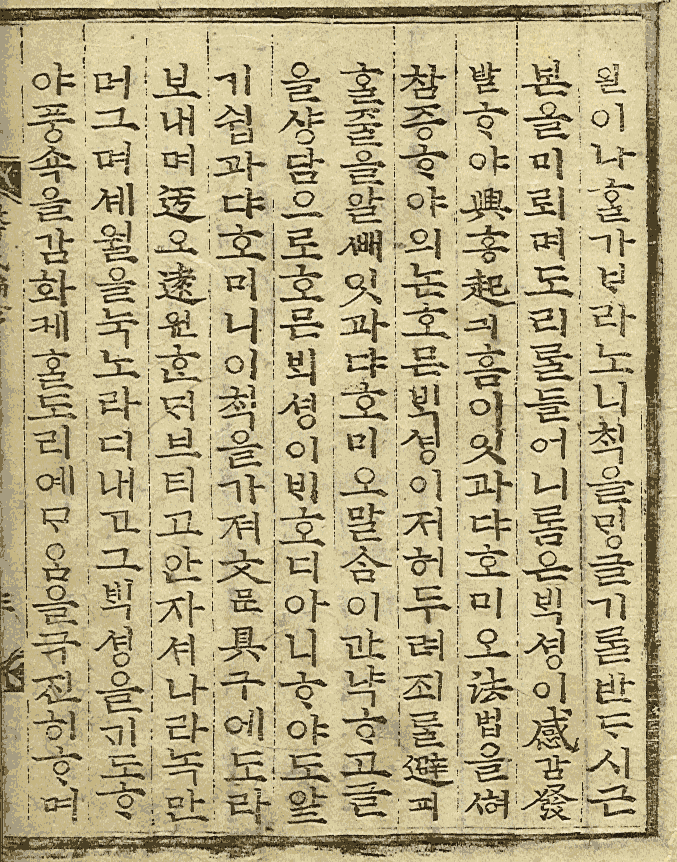 월이나ᄒᆞᆯ가ᄇᆞ라노니ᄎᆡᆨ을ᄆᆡᆼ글기ᄅᆞᆯ반ᄃᆞ시근
본을미뢰며도리ᄅᆞᆯ들어니ᄅᆞᆷ은ᄇᆡᆨ셩이感감發
발ᄒᆞ야興흥起긔흠이잇과댜호미오法법을혀
참증ᄒᆞ야의논호믄ᄇᆡᆨ셩이저허두려죄ᄅᆞᆯ避피
ᄒᆞᆯ줄을알ᄲᅢ잇과댜호미오말ᄉᆞᆷ이간략ᄒᆞ고글
을샹담으로호믄ᄇᆡᆨ셩이ᄇᆡ호디아니ᄒᆞ야도알
기쉽과댜호미니이ᄎᆡᆨ을가져文문具구에도라
보내며迂오遠원ᄒᆞᆫᄃᆡ브티고안자셔나라녹만
머그며셰월을눅노라디내고그ᄇᆡᆨ셩을기도ᄒᆞ
야풍쇽을감화케ᄒᆞᆯ도리예ᄆᆞᄋᆞᆷ을극진히ᄒᆞ며